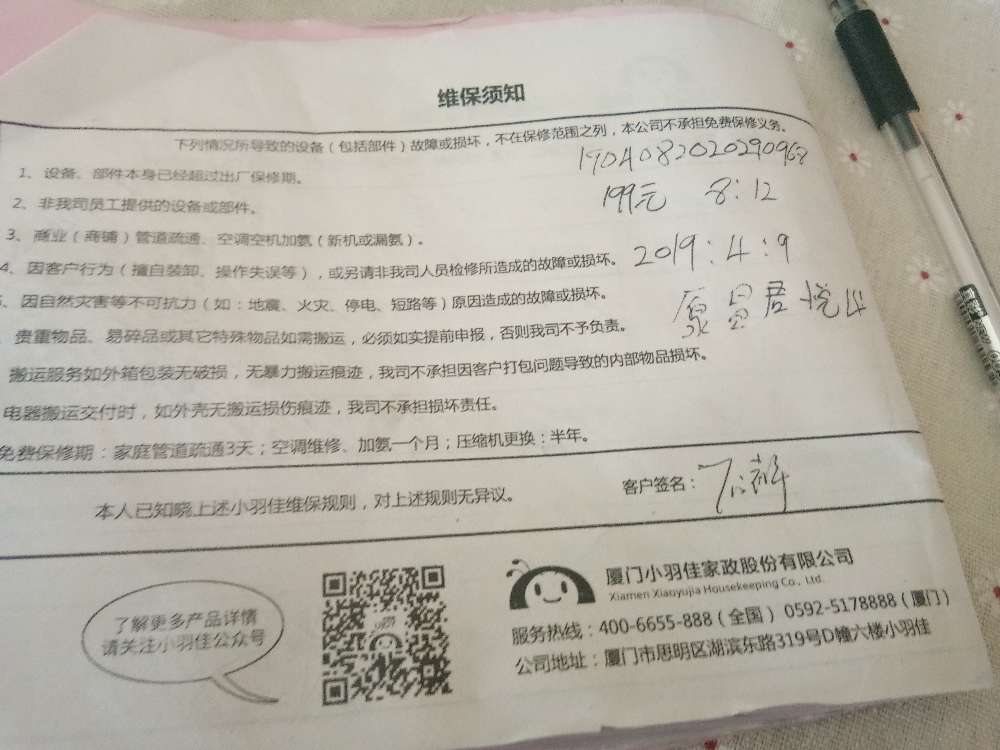 维保须知
下列情况所导致的设备（包括部件）故障或损坏，不在保修范围之列，本公司不承担免费保修义务。
1、设备、部件本身已经超过出厂保修期。
1904082020290968
2、非我司员工提供的设备或部件。
199元 8:12
3、商业（商铺）管道疏通、空调空机加氨（新机或漏氨）。
2019:4:9
4、因客户行为（擅自装卸、操作失误等），或另请非我司人员检修所造成的故障或损坏。
、因自然灾害等不可抗力（如：地震、火灾、停电、短路等）原因造成的故障或损坏。
君悦
贵重物品、易碎品或其它特殊物品如需搬运，必须如实提前申报，否则我司不予负责。
搬运服务如外箱包装无破损，无暴力搬运痕迹，我司不承担因客户打包问题导致的内部物品损坏。
电器搬运交付时，如外壳无搬运损伤痕迹，我司不承担损坏责任。
免费保修期：家庭管道疏通3天；空调维修、加氨一个月；压缩机更换：半年。
本人已知晓上述小羽佳维保规则，对上述规则无异议。
客户签名：
了解更多产品详情
请关注小羽佳公众号
厦门小羽佳家政股份有限公司
Xiamen Xiaoyujia Housekeeping Co., Ltd.
服务热线：400-6655-888（全国） 0592-5178888（厦门）
公司地址：厦门市思明区湖滨东路319号D幢六楼小羽佳